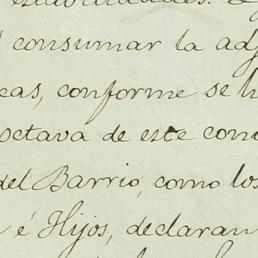 consumar la adj
cas, conforme se h
octava de este con
del Barrio, como los
é Hijos, declaran